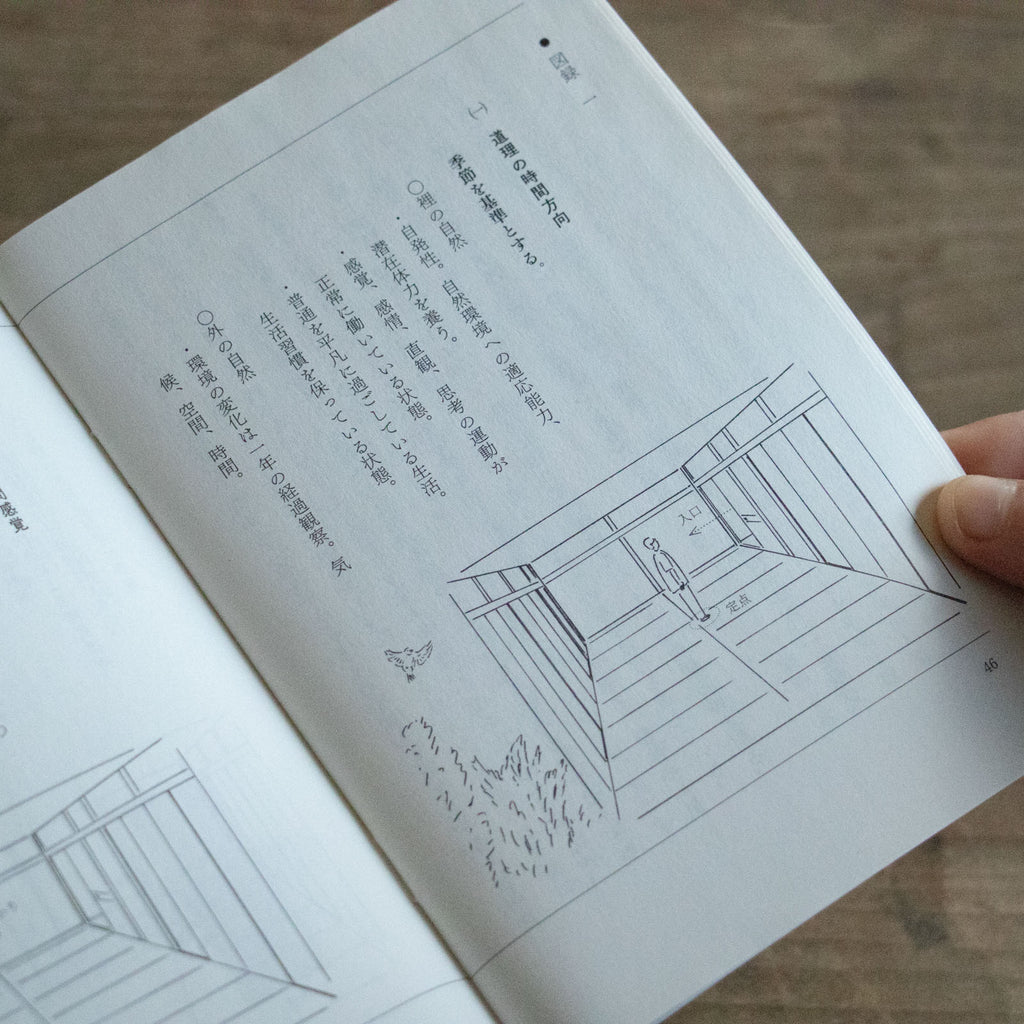 ●図録 一
㈠ 道理の時間方向
季節を基準とする。
○裡の自然
・自発性。自然環境への適応能力、
潜在体力を養う。
・感覚、感情、直観、思考の運動が
正常に働いている状態。
・普通を平凡に過ごしている生活。
生活習慣を保っている状態。
○外の自然
・環境の変化は一年の経過観察。気
候、空間、時間。
入口
定点
46
感覚